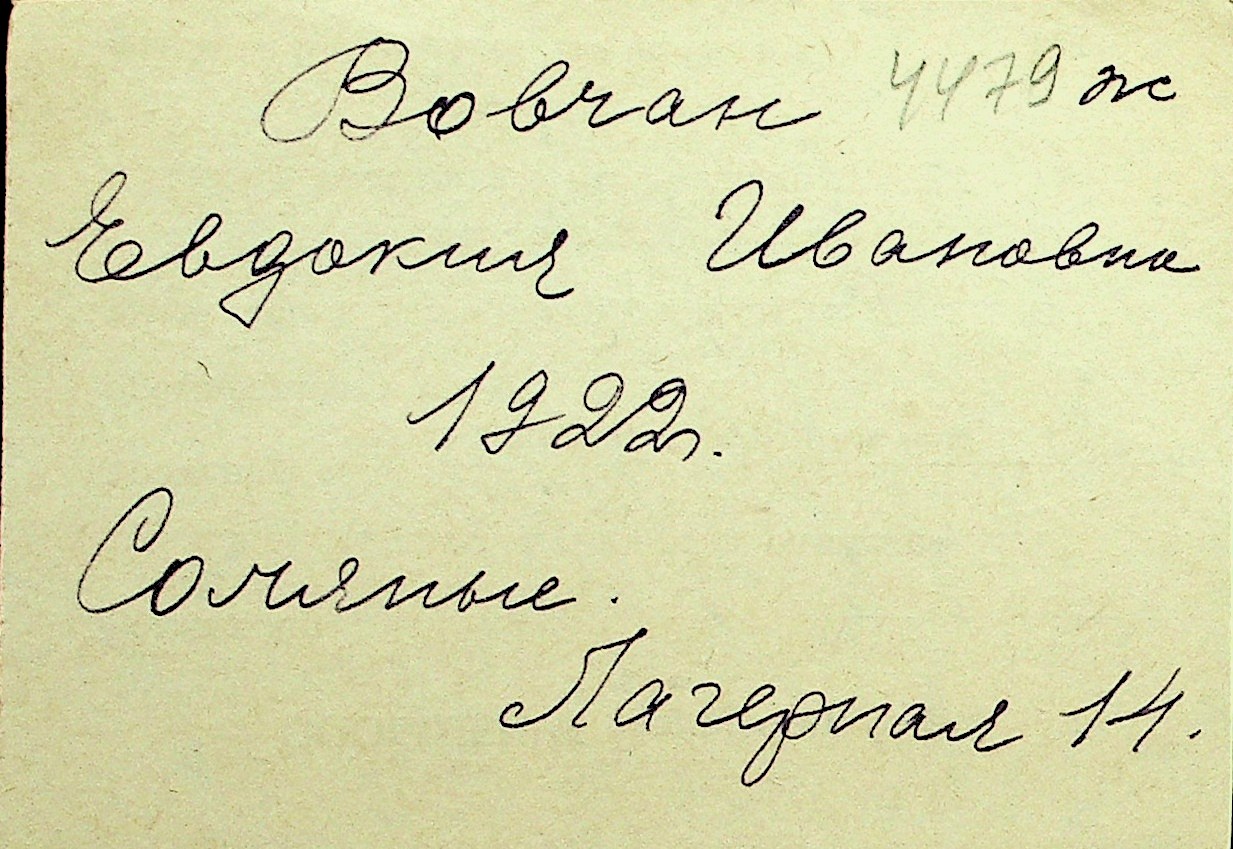 Вовчан 4479 ж
Евдокия Ивановна
1922г.
Соляные.
Лагерная 14.